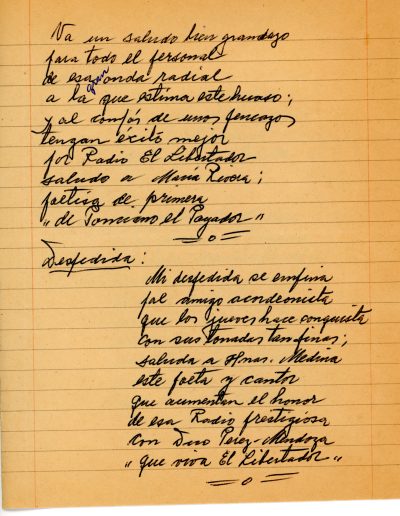 Va un saludo bien grandazo
para todo el personal
de esa gran onda radial
a la que estima este huaso;
y al compás de unos pencazos
tengan éxito mejor
por Radio El Libertador
saludo a María Rivera;
poetisa de primera
"de Ponciano el Payador"
Despedida:
Mi despedida se empina
pal amigo acordeonista
que los jueves hace conquista
con sus tonadas tan finas;
saluda a Hnas. Medina
este poeta y cantor
que aumentan el honor
de esa Radio prestigiosa
con Dino Pérez-Mendoza
"que viva El Libertador"